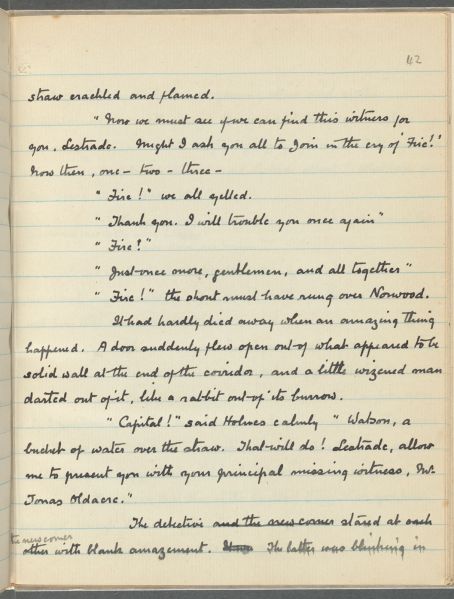 42
straw crackled and flamed.
" Now we must see if we can find this witness for
you, Lestrade. Might I ask you all to join in the cry of 'Fire!'
Now then, one – two – three –
" Fire!" we all yelled.
" Thank you. I will trouble you once again"
" Fire!"
" Just once more, gentlemen, and all together"
" Fire!" the shout must have rung over Norwood.
It had hardly died away when an amazing thing
happened. A door suddenly flew open out of what appeared to be
solid wall at the end of the corridor, and a little wizened man
darted out of it, like a rabbit out of its burrow.
" Capital!" said Holmes calmly " Watson, a
bucket of water over the straw. That will do! Lestrade, allow
me to present you with your principal missing witness, Mr.
Jonas Oldacre."
The detective and the new comer stared at each
the newcomer
other with blank amazement. The latter was blinking in